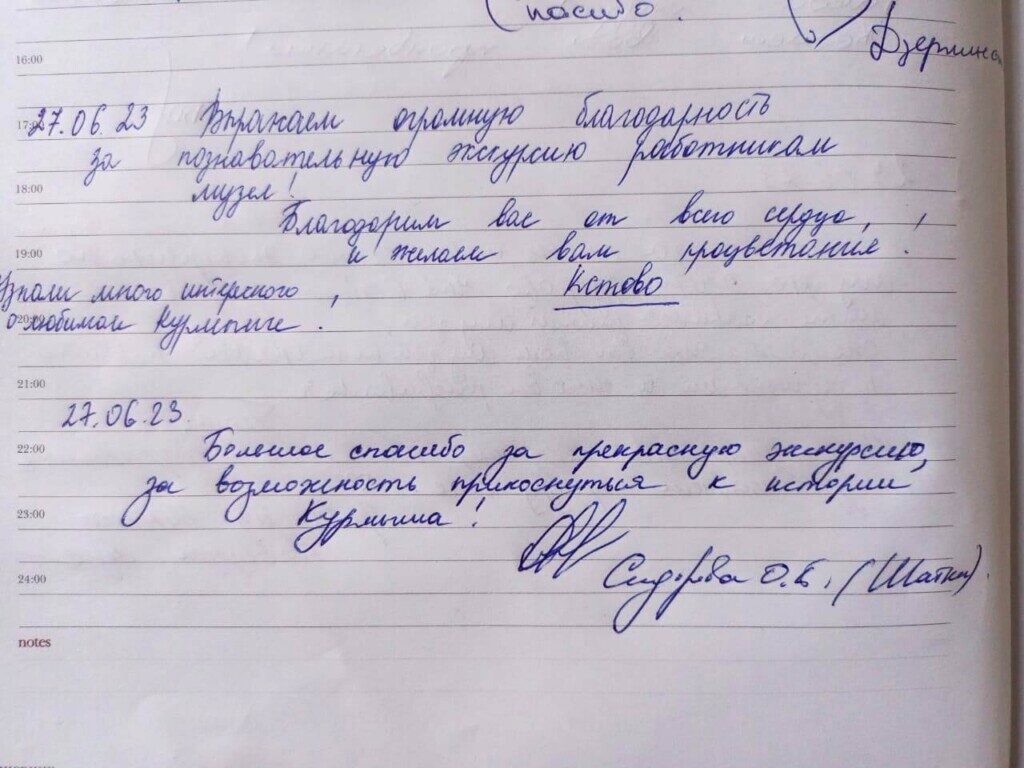 спасибо.
Дзержинск
16:00
17:00
27.06.23 Выражаем огромную благодарность
за познавательную экскурсию работникам
18:00
музея!
Благодарим вас от всего сердца,
19:00
и желаем вам процветания!
Узнали много интересного,
Кстово
20:00
о любимом Курмыше!
21:00
27.06.23.
22:00
Большое спасибо за прекрасную экскурсию,
за возможность прикоснуться к истории
23:00
Курмыша!
24:00
Сидорова О.Б. (Шатки).
notes